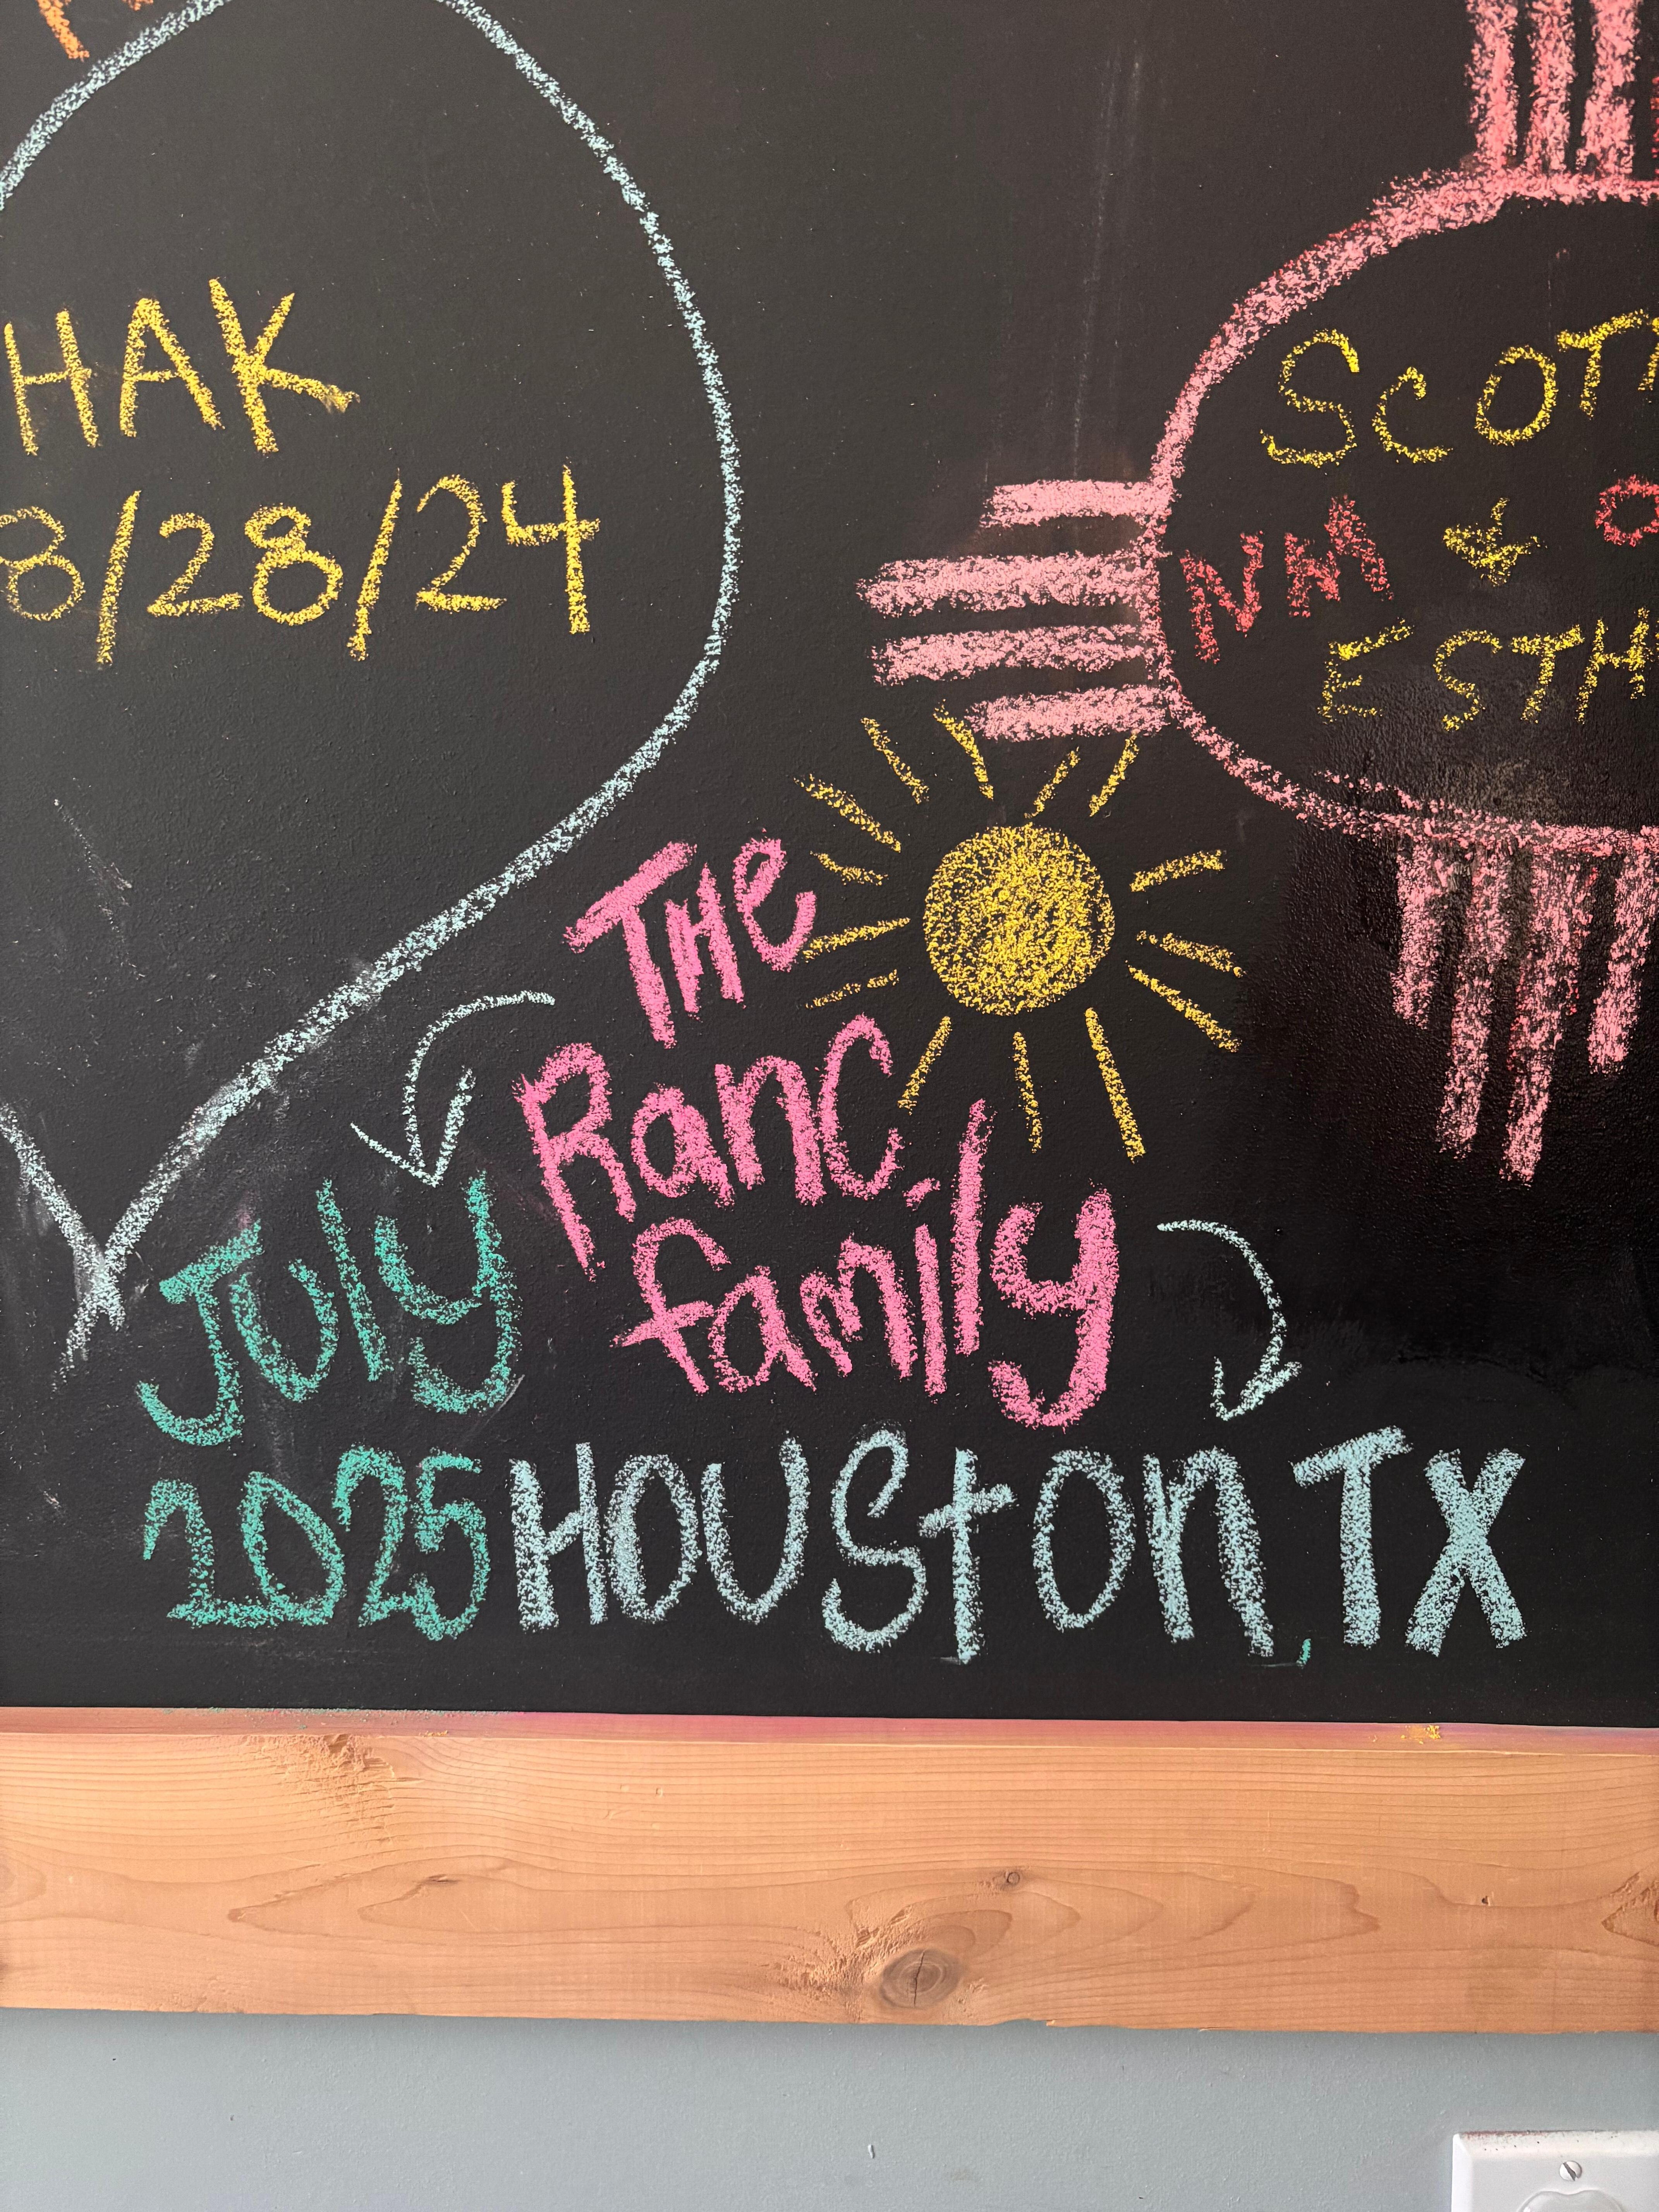 HAK
8/28/24
SCOTT
NM &
ESTH
THe
Ranc
family
July
2025 HOUSton, TX